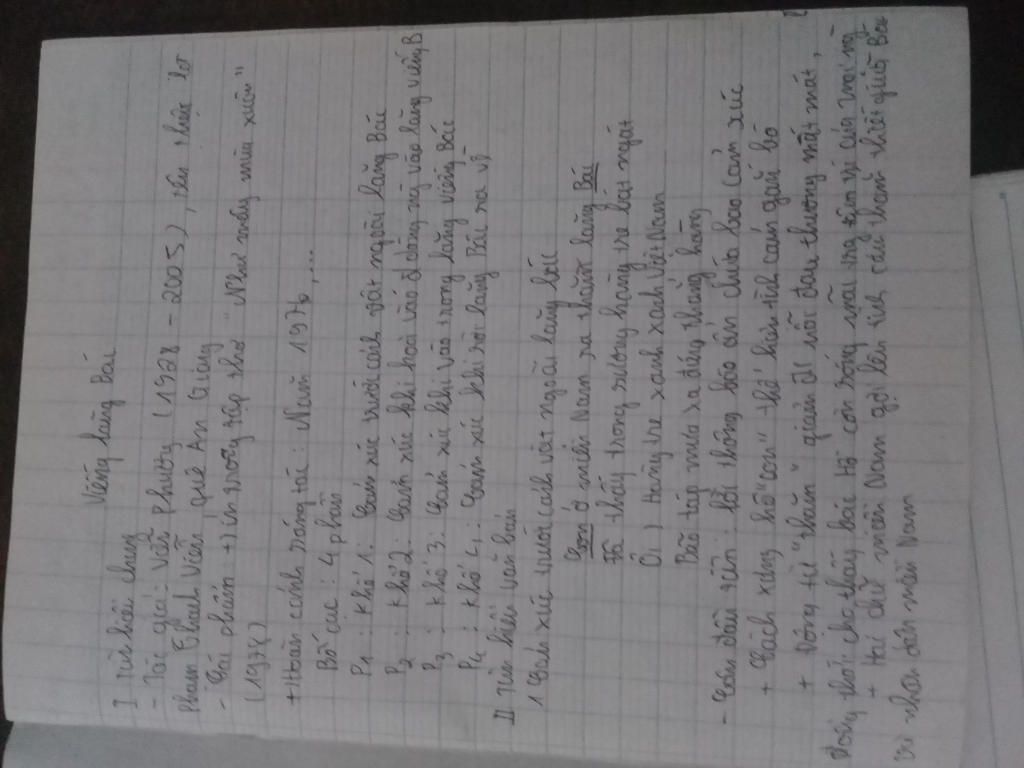 Viếng lăng Bác
I Tìm hiểu chung
- Tác giả: Viễn Phương (1928 - 2005), tên thật là
Phan Thanh Viễn quê An Giang
- Tác phẩm: +) in trong tập thơ "Như mây mùa xuân"
(1978)
+ Hoàn cảnh sáng tác: Năm 1976,...
Bố cục: 4 phần
P1: Khổ 1: Cảm xúc trước cảnh vật ngoài lăng Bác
P2: Khổ 2: Cảm xúc khi hoà vào dòng ng vào lăng viếng B
P3: Khổ 3: Cảm xúc khi vào trong lăng viếng Bác
P4: Khổ 4: Cảm xúc khi rời lăng Bác ra về
II Tìm hiểu văn bản
1 Cảm xúc trước cảnh vật ngoài lăng bác
Con ở miền Nam ra thăm lăng Bác
Đã thấy trong sương hàng tre bát ngát
Ôi, Hàng tre xanh xanh Việt Nam
Bão táp mưa sa đứng thẳng hàng
- Câu đầu tiên: lời thông báo ẩn chứa bao cảm xúc
+ Cách xưng hô "con" thể hiện tình cảm gần gũi
+ Động từ "thăm" giảm đi nỗi đau thương mất mát,
đồng thời cho thấy bác Hồ còn sống mãi trong của mọi ng
+ Hai chữ miền Nam gợi lên tình cảm tha thiết giữa Bác
với nhân dân miền Nam